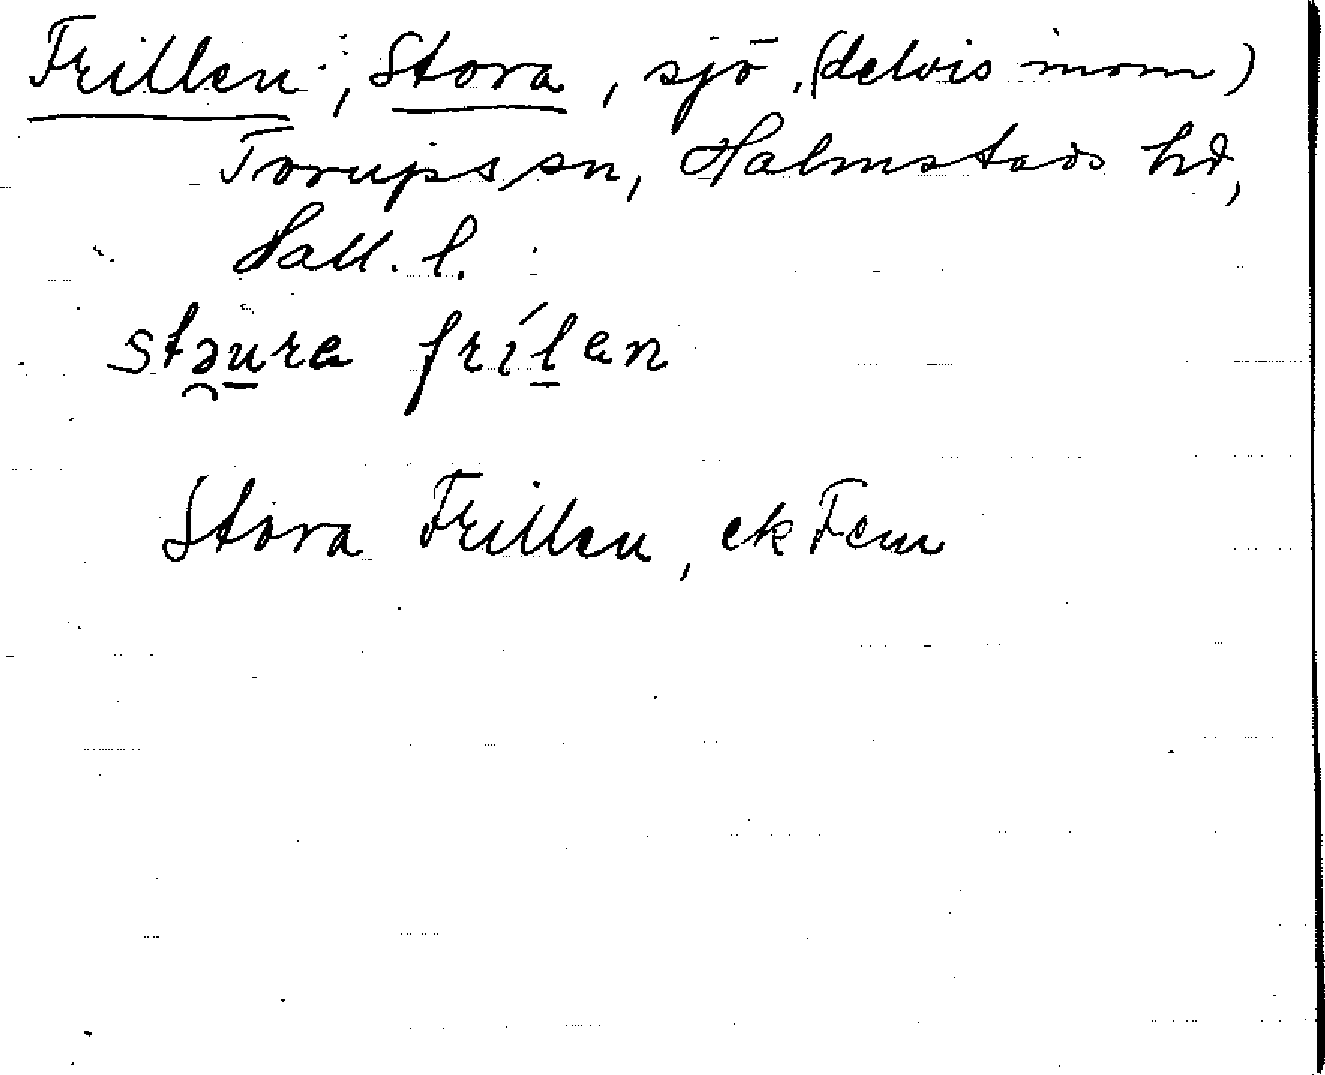 Frillen, Stora, sjö, (delvis inom)
Torups sn, Halmstads hd,
Hall. l.
stə̯u̲ra fríl̲en
Stora Frillen, ek